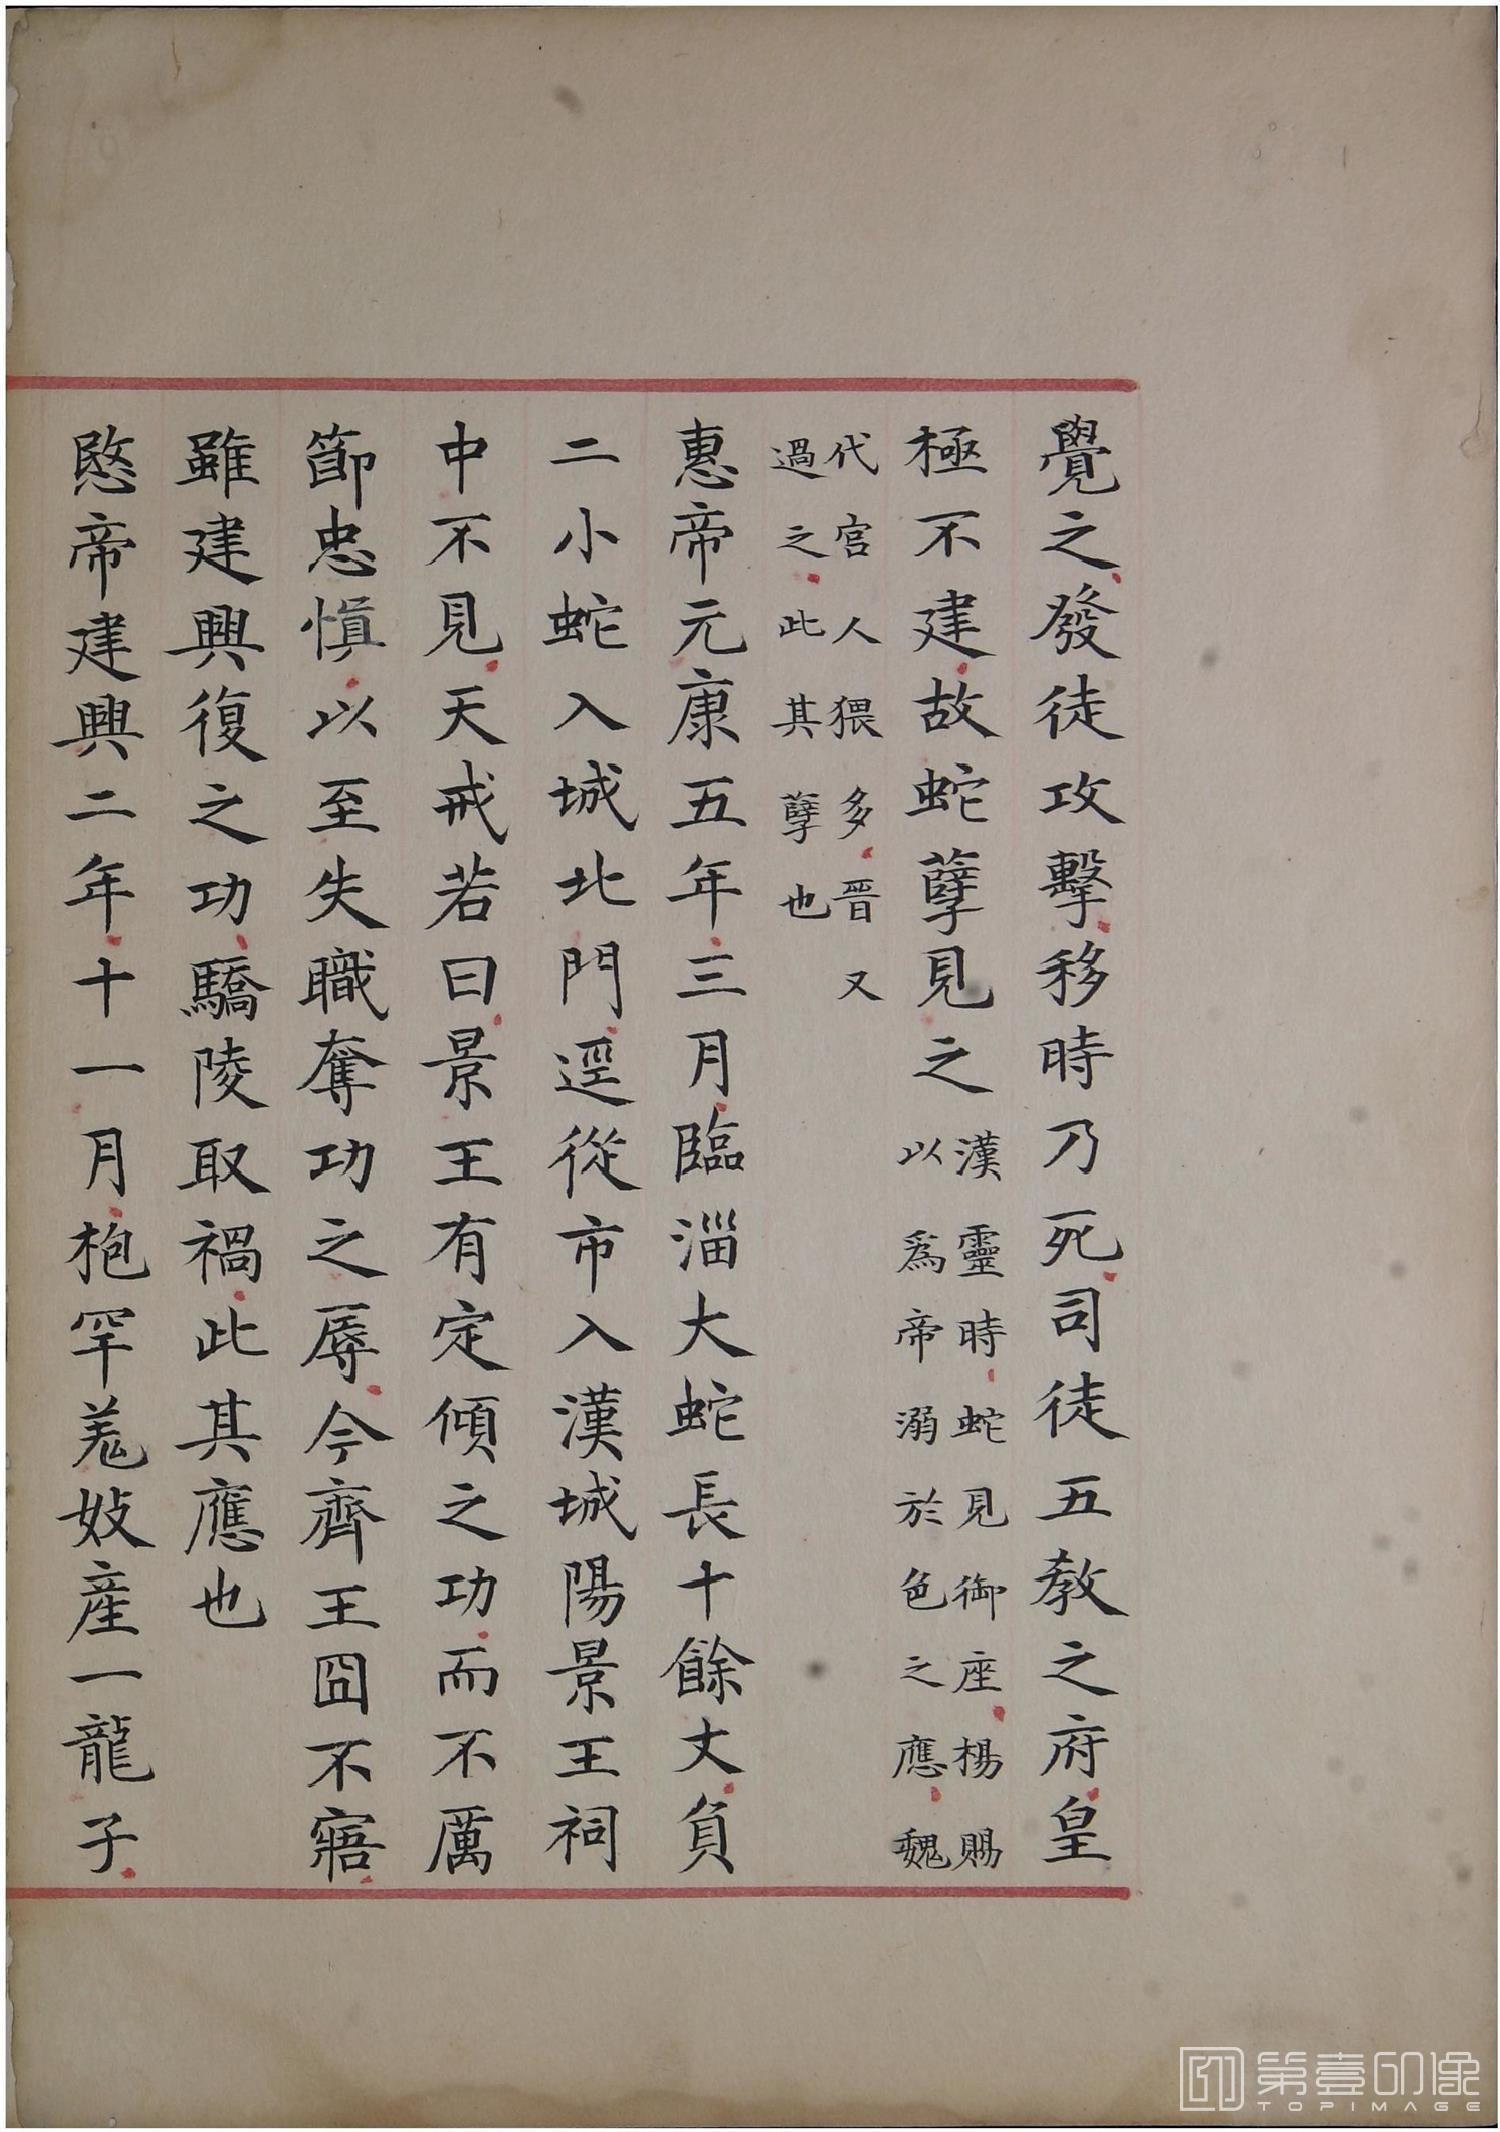 覺之發徒攻擊移時乃死司徒五教之府皇
極不建故蛇孽見之漢靈時蛇見御座楊賜
以為帝溺於色之應魏
代宮人猥多晉又
過之此其孽也
惠帝元康五年三月臨淄大蛇長十餘丈負
二小蛇入城北門逕從市入漢城陽景王祠
中不見天戒若曰景王有定傾之功而不厲
節忠慎以至失職奪功之辱今齊王冏不寤
雖建興復之功驕陵取禍此其應也
愍帝建興二年十一月枹罕羌妓產一龍子
第壹印像
TOPIMAGE